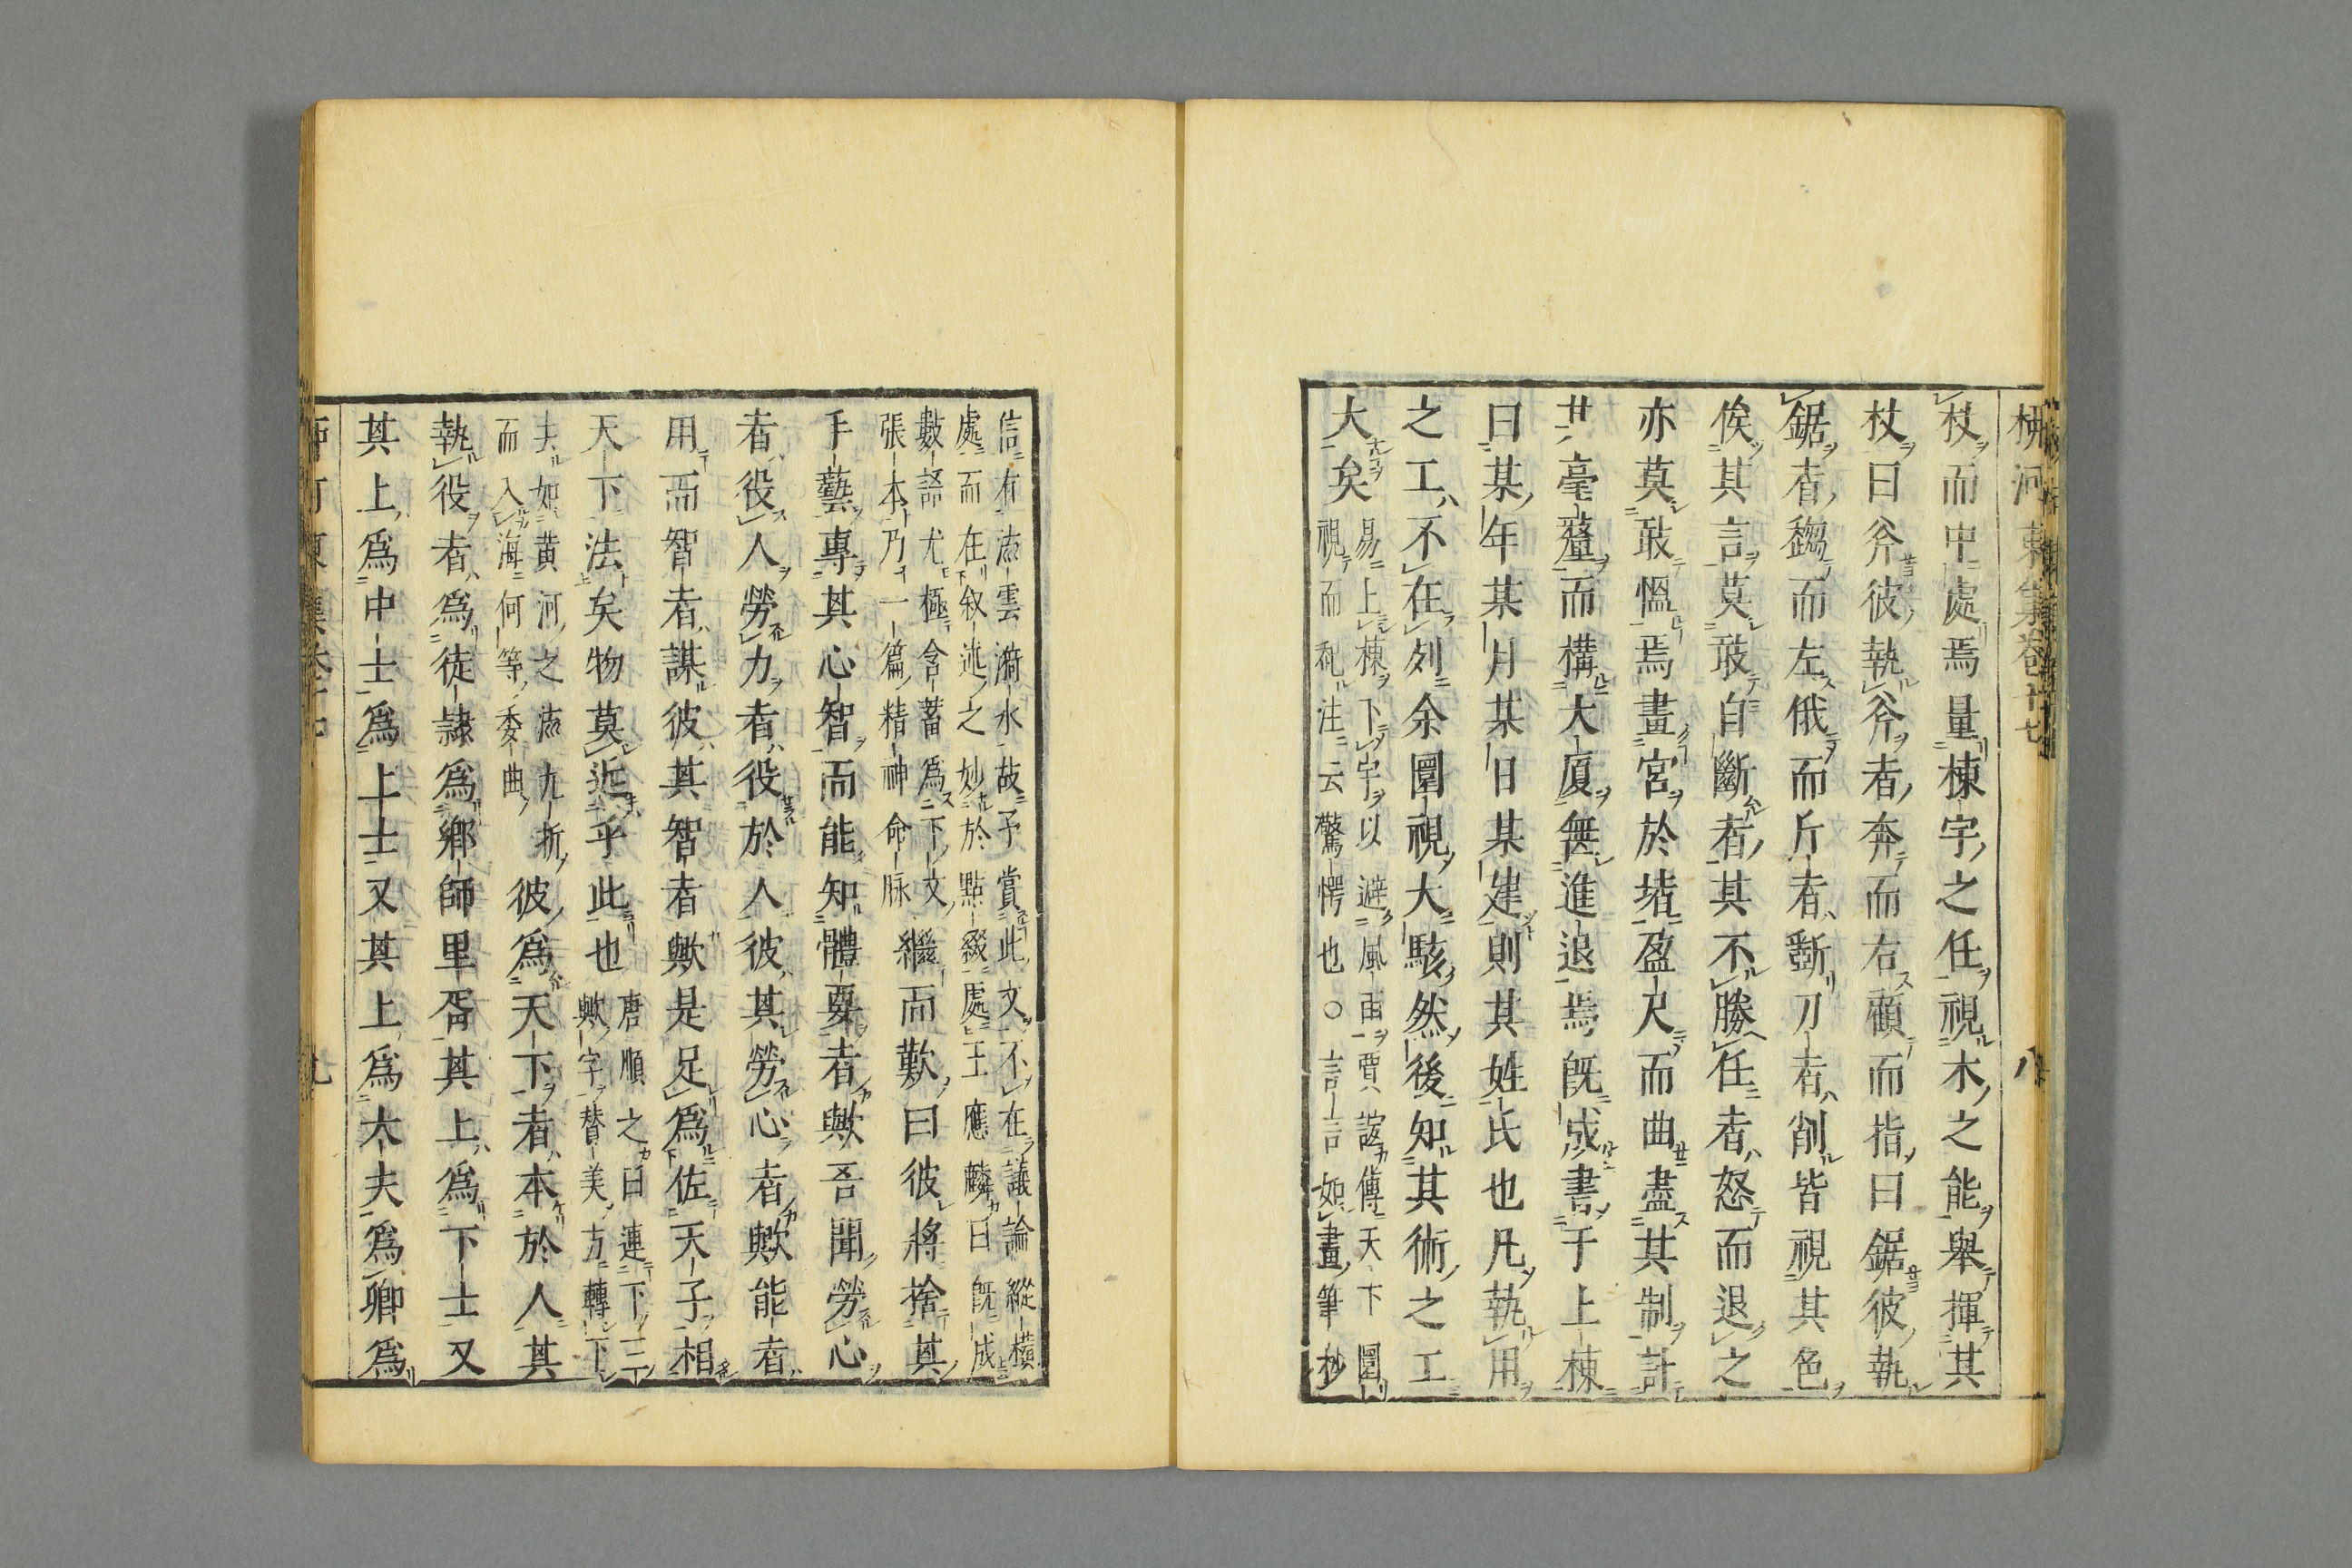 柳河東集卷十七
八
杖而中處焉量棟宇之任視木之能舉揮其
杖曰斧彼執斧者奔而右顧而指曰鋸彼執
鋸者趨而左俄而斤者斲刀者削皆視其色
俟其言莫敢自斷者其不勝任者怒而退之
亦莫敢慍焉畫宮於堵盈尺而曲盡其制計
其毫釐而構大厦無進退焉既成書于上棟
曰某年某月某日某建則其姓氏也凡執用
之工不在列余圜視大駭然後知其術之工
大矣
易上棟下宇以避風雨賈誼傳天下圜
視而 注云驚愕也○言言如畫筆抄
信有流雲漪水故予嘗此文不在議論縱橫
處而在叙述之妙於點綴處王應麟曰既成
數語尤極含蓄為下文
張本乃一篇精神命脉
繼而歎曰彼將捨其
手藝專其心智而能知體要者歟吾聞勞心
者役人勞力者役於人彼其勞心者歟能者
用而智者謀彼其智者歟是足為佐天子相
天下法矣物莫近乎此也
唐順之曰連下三
歟字替美方轉下
夫如黄河之流九折
而入海何等委曲
彼為天下者本於人其
執役者為徒隷為鄉師里胥其上為下士又
其上為中士為上士又其上為大夫為卿為